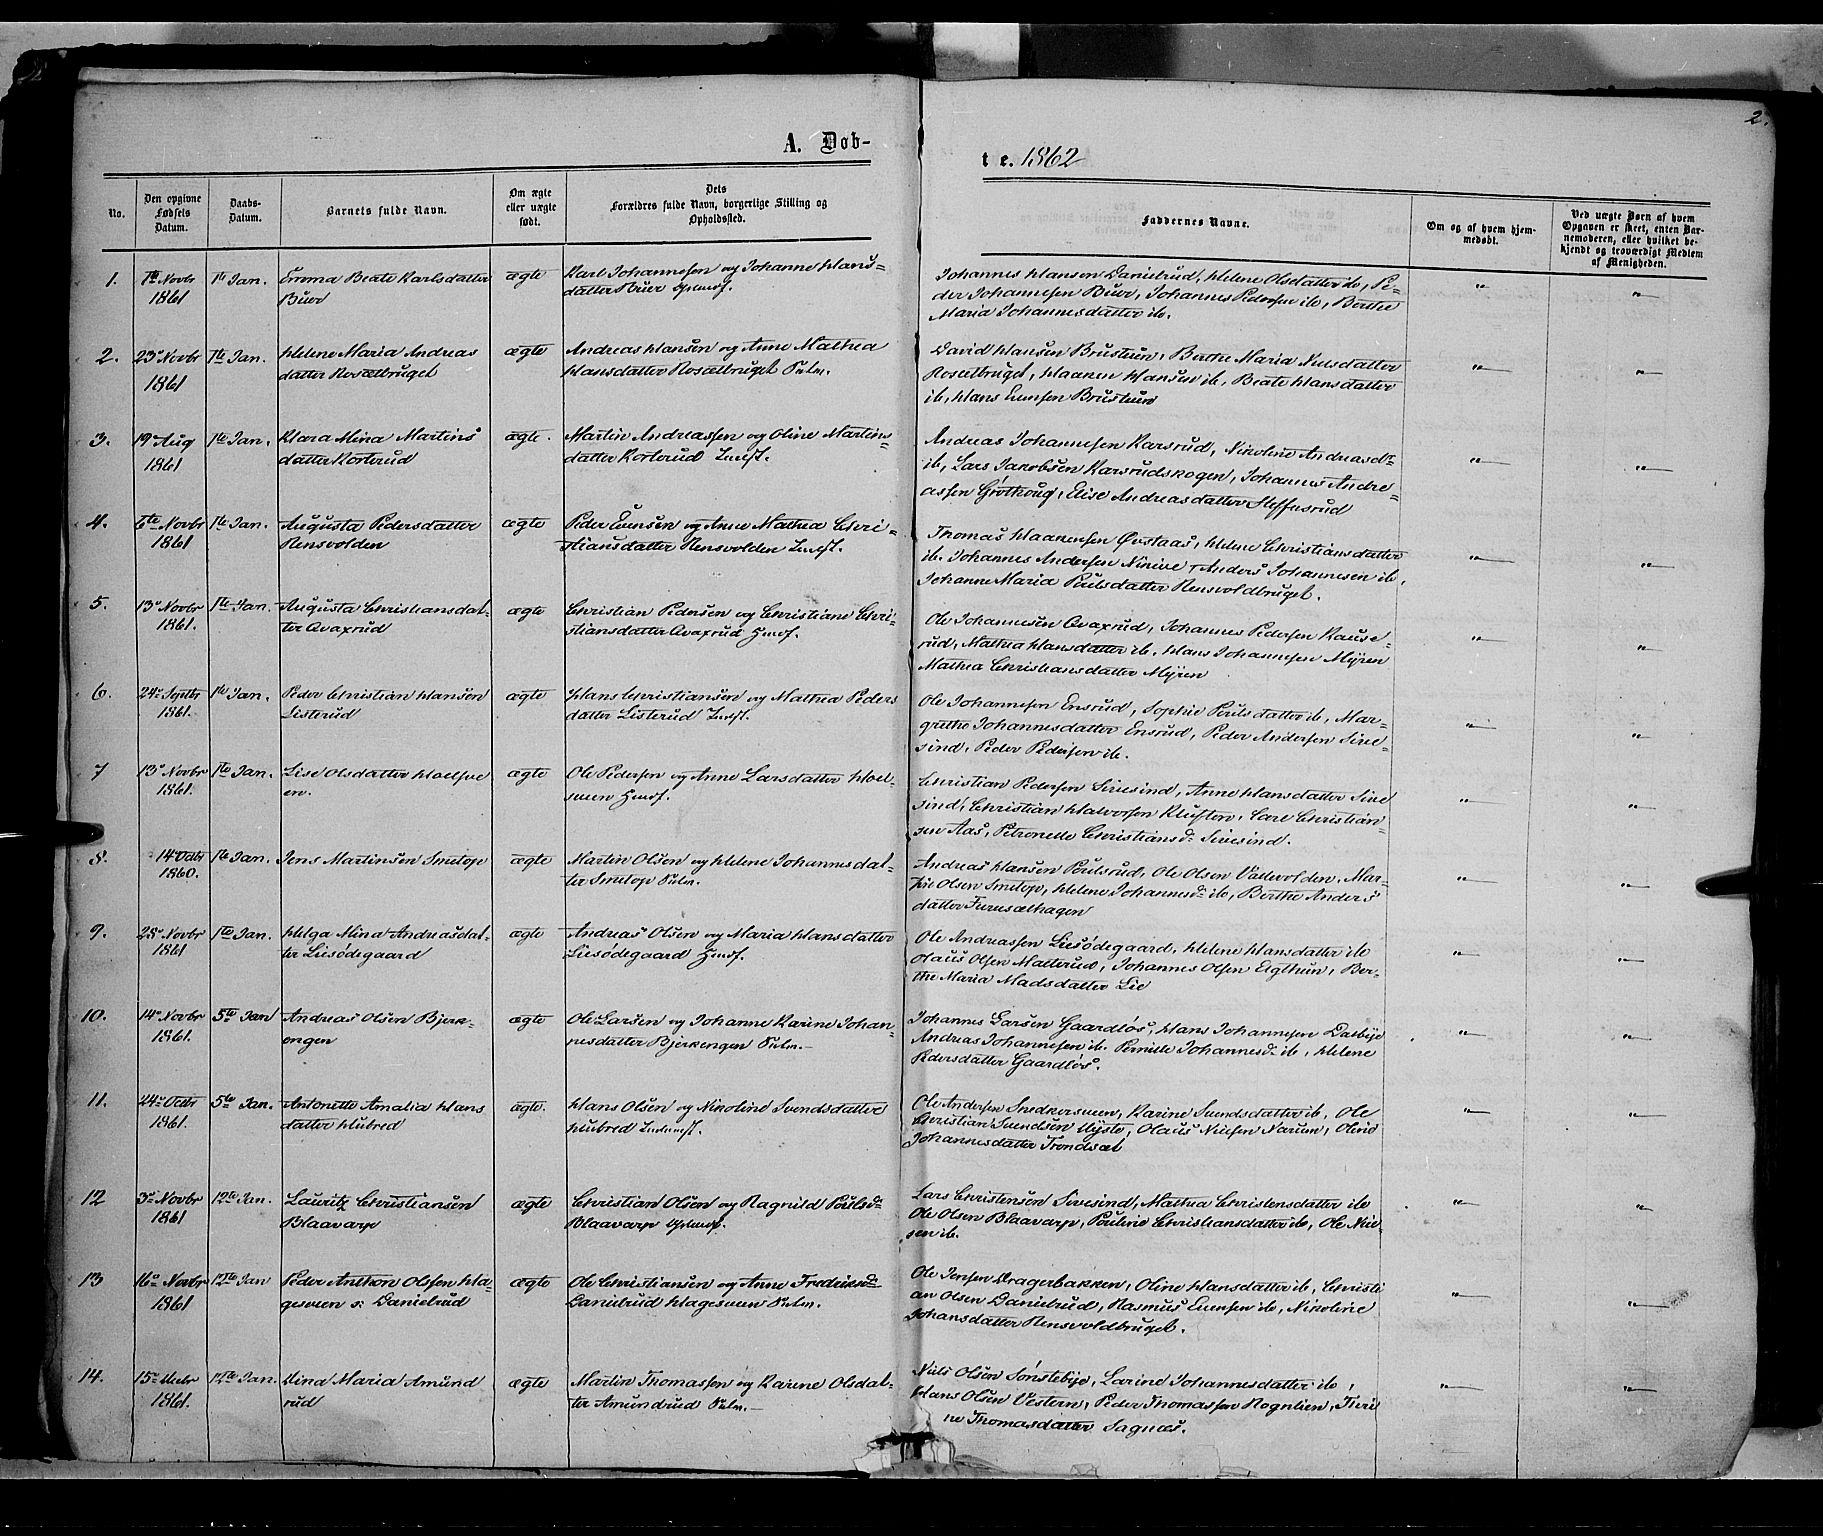 2.
A. Døb-
te. 1862
No.
Den opgivne
Fødsels
Datum.
Daabs-
Datum.
Barnets fulde Navn.
Om ægte
eller uægte
født.
Dets
Forældres fulde Navn, borgerlige Stilling og
Opholdssted.
Faddernes Navne.
Om og af hvem hjem-
medøbt.
Ved uægte Børn af hvem
Opgaven er skeet, enten Bar-
nemoderen, eller hvilket be-
kjendt og troværdigt Medlem
af Menigheden.
1. 1ste Novbr 1ste Jan. Emma Beate Karlsdatter ægte Karl Johannesen og Johanne Hans-
1861 Buer datter Buer
Johannes Hansen Danielrud, Helene Olsdatter ib, Pe-
der Johannesen Buer, Johannes Pedersen ib, Berthe
Maria Johannesdatter ib.
2. 23de Novbr 1ste Jan. Helene Maria Andreas ægte Andreas Hansen og Anne Mathea
1861 datter Rosætbruget Hansdatter Rosætbruget Selm.
David Hansen Brustuen, Berthe Maria Nilsdatter
Rosætbruget, Haaken Hansen ib, Beate Hansdatter
ib, Hans Evensen Brustuen
3. 19de Aug 1ste Jan. Klara Mina Martins ægte. Martin Andreassen og Oline Martins-
1861 datter Korterud datter Korterud Inderst.
Andreas Johannesen Karsrud, Nikoline Andreasdr
ib, Lars Jakobsen Karsrudskogen, Johannes Andre-
assen Grøthoug, Elise Andreasdatter Steffensrud
4. 6te Novbr 1ste Jan. Augusta Pedersdatter ægte Peder Evensen og Anne Mathea Chri-
1861 Rensvolden stiansdatter Rensvolden Inderst.
Thomas Haakensen Øvstaas, Helene Christiansdatter
ib. Johannes Andersen Ninive, Anders Johannesen ib,
Johanne Maria Poulsdatter Rensvoldbruget.
5. 13de Novbr 1ste Jan. Augusta Christiansdat- ægte Christian Pedersen og Christiane Chri-
1861. ter Qvaxrud stiansdatter Qvaxrud Husm.
Ole Johannesen Qvaxrud, Johannes Pedersen Kause-
rud, Mathea Hansdatter ib. Hans Johannesen Myren
Mathea Christiansdatter Myren
6. 24de Septbr 1ste Jan. Peder Christian Hansen ægte Hans Christiansen og Mathea Peders
1861. Listerud datter Listerud Inderst.
Ole Johannesen Ensrud, Sophie Poulsdatter ib, Mar-
grethe Johannesdatter Ensrud, Peder Andersen Sive-
sind, Peder Pedersen ib.
7 13de Novbr 1ste Jan. Lise Olsdatter Hoelsve ægte Ole Pedersen og Anne Larsdatter Hoel-
1861. en. sveen Husm.
Christian Pedersen Sivesind, Anne Hansdatter Sive
sind, Christian Halvorsen Kluften, Carl Christian-
sen Aas, Petronelle Christiansdr Sivesind.
8. 14de Octbr 1ste Jan. Jens Martinsen Smetop ægte Martin Olsen og Helene Johannesdat-
1860. ter Smetop Selm.
Andreas Hansen Poulsrud, Ole Olsen Vadevolden, Mar-
the Olsen Smetop, Helene Johannesdr ib, Berthe Anders
datter Furusæthagen
9. 28de Novbr 1ste Jan. Helga Mina Andreasdat- ægte Andreas Olsen og Maria Hansdatter
1861 ter Liesødegaard Liesødegaard Husm.
Ole Andreassen Liesødegaard, Helene Hansdatter ib
Olaus Olsen Malterud, Johannes Olsen Egthun, Ber-
the Maria Madsdatter Lie
10. 14de Novbr 5te Jan Andreas Olsen Bjerk- ægte Ole Larsen og Johanne Karine Johan-
1861. engen nesdatter Bjerkengen Selm.
Johannes Larsen Gaardløs, Hans Johannesen Dalbye
Andreas Johannesen ib. Pernille Johannesdr ib, Helene
Pedersdatter Gaardløs.
11. 24de Octbr 5te Jan. Antonette Amalia Hans ægte. Hans Olsen og Nikoline Svendsdatter
1861. datter Hubred Hubred Inderst.
Ole Andersen Snedkersveen, Karine Svendsdatter ib, Ole
Christian Svendsen Nyste, Olaus Nielsen Narum, Oline
Johannesdatter Trondsæt
12 3die Novbr 12te Jan. Lauritz Christiansen ægte Christian Olsen og Ragnild Poulsdr
1861 Blaavarp Blaavarp
Lars Christensen Sivesind, Mathea Christensdatter ib
Ole Olsen Blaavarp, Pouline Christiansdatter ib, Ole Niel-
sen ib.
13 16de Novbr 12te Jan Peder Anthon Olsen Ha- ægte Ole Christiansen og Anne Fredriksdr
1861 gesveen v: Danielrud Danielrud Hagesveen Selm.
Ole Jensen Dragerbakken, Oline Hansdatter ib, Christi
an Olsen Danielrud, Rasmus Evensen ib, Nikoline
Johansdatter Rensvoldbruget.
14. 15de Decbr 12te Jan. Mina Maria Amund ægte Martin Thomassen og Karine Olsdat-
1861. rud ter Amundrud Selm.
Niels Olsen Sønsteby, Larine Johannesdatter ib,
Hans Olsen Vestern, Peder Thomassen Rognlien, Turi
ne Thomasdatter Sagnæs.